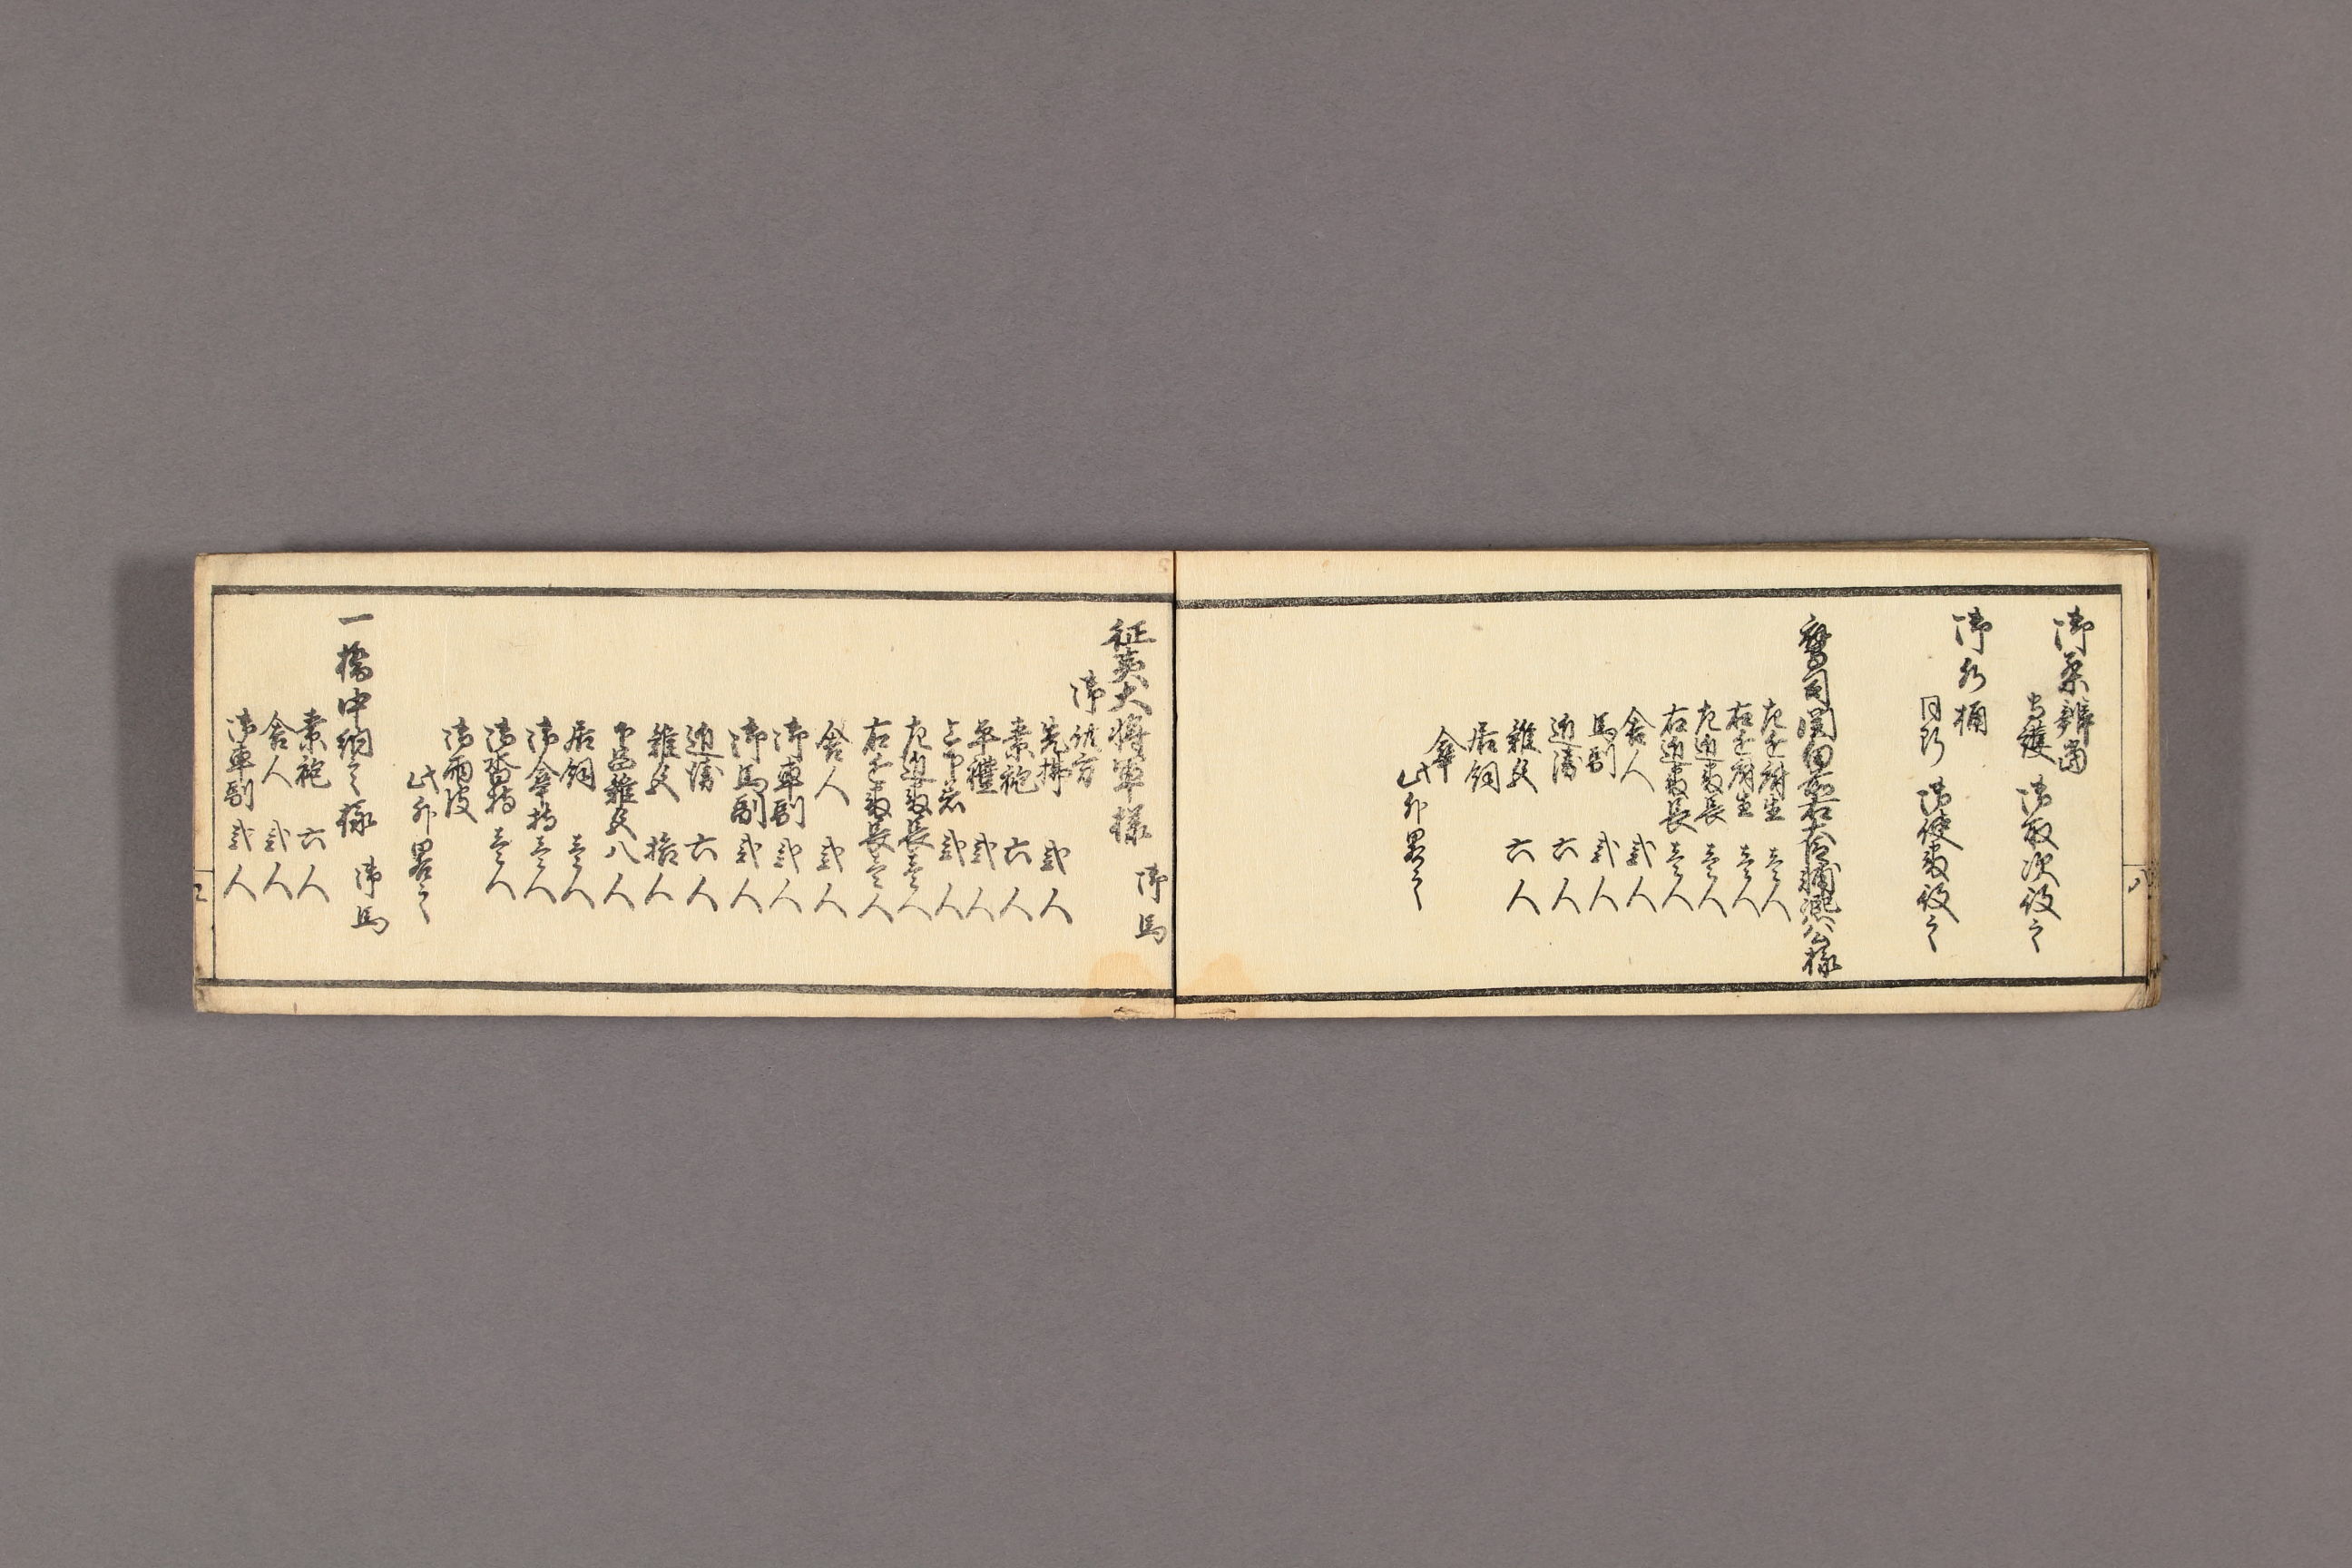 御茶辨當
守護 御取次役之
御水桶
同断 御使番役之
鷹司関白前右大臣輔凞公様
左近府生 壱人
右近府生 壱人
左近番長 壱人
右近番長 壱人
舎人 弐人
馬副 弐人
近衛 六人
雑色 六人
居飼
傘
此外畧之
八
征夷大将軍様 御馬
御先拂 弐人
素袍 六人
平禮 弐人
上下着 弐人
左近番長 壱人
右近番長 壱人
舎人 弐人
御車副 弐人
御馬副 弐人
近衛 六人
雑色 拾人
下臈雑色 八人
居飼 壱人
御傘持 壱人
御沓持 壱人
御雨皮
此外畧之
一橋中納言様 御馬
素袍 六人
舎人 弐人
御車副 弐人